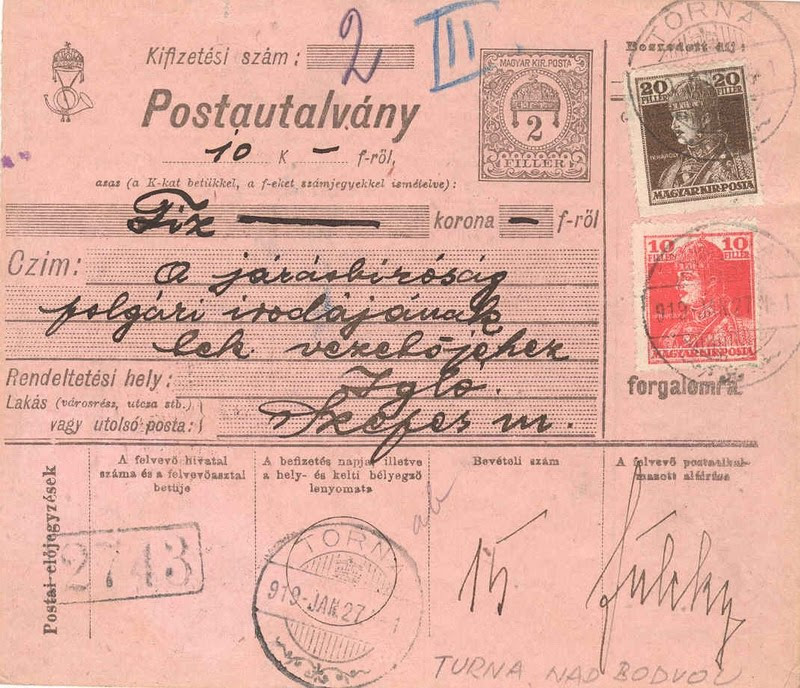 Kifizetési szám:
2
III
Postautalvány
10 K — f-ről,
azaz (a K-kat betükkel, a f-eket számjegyekkel ismételve):
Tiz — korona — f-ről
MAGYAR KIR. POSTA
2
FILLÉR
Beszedett díj:
TORNA
20 20
FILLÉR FILLÉR
MAGYAR KIR. POSTA
10 10
FILLÉR FILLÉR
919 JAN 27
MAGYAR KIR. POSTA
forgalomra.
Czím: A járásbiróság
polgári irodájának
lek vezetőjéhez
Rendeltetési hely: Igló.
Lakás (városrész, utcza stb.)
vagy utolsó posta: Szepes m.
Postai előjegyzések
A felvevő hivatal
száma és a felvevőasztal
betüje
A befizetés napja, illetve
a hely- és kelti bélyegző
lenyomata
Bevételi szám
A felvevő postaalkal-
mazott aláírása
2743
TORNA
919 JAN 27
15
TURNA NAD BODVOU